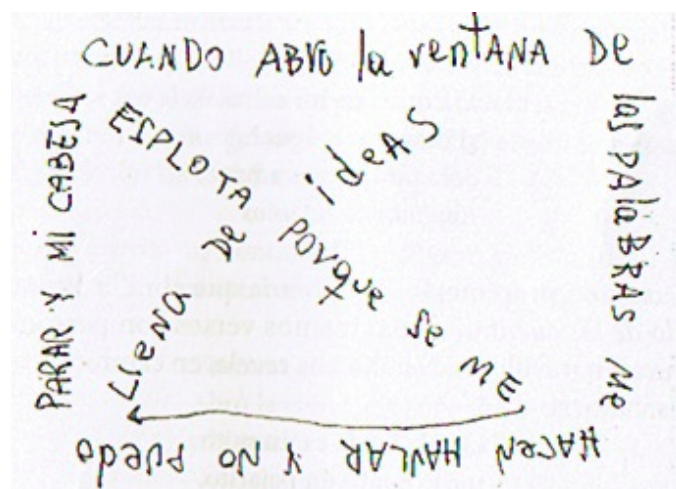 CUANDO ABRO la ventANA DE
las PAlaBRAS Me
HACEN HAVLAR Y NO PUEDO
PARAR Y MI CABEJA
ESPLOTA porque se ME
LLeNA De ideAS